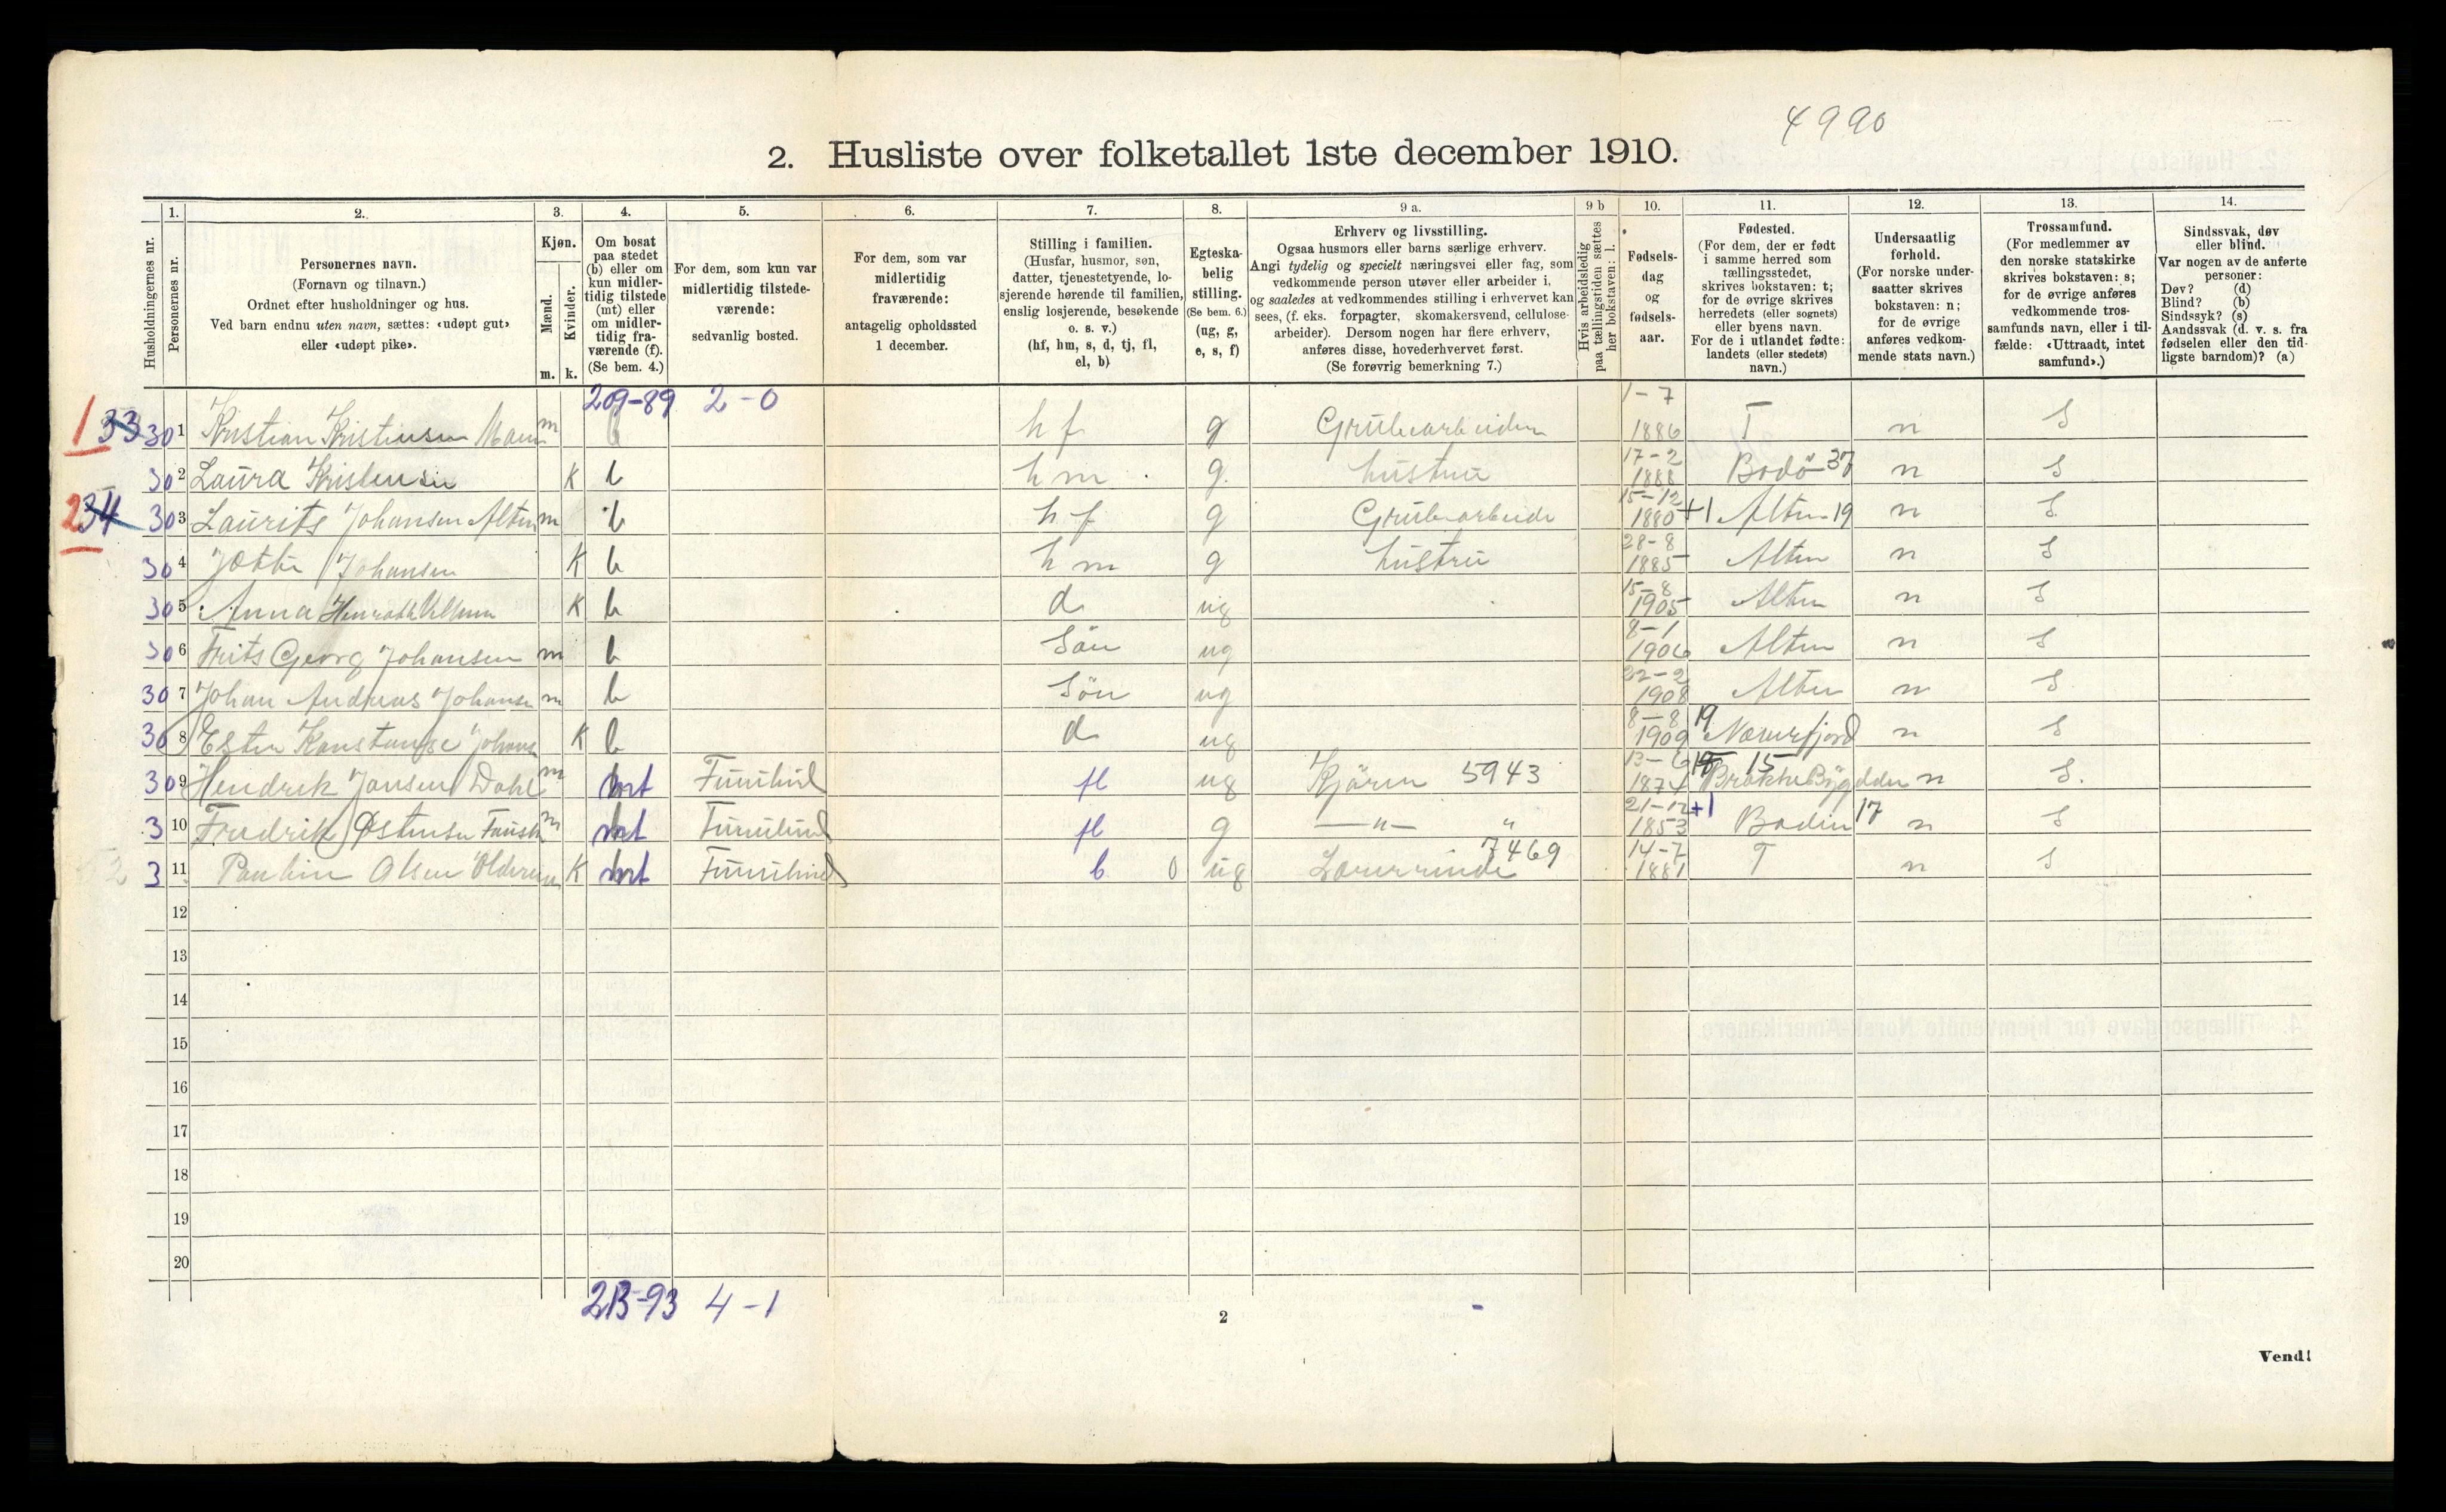 4990
2. Husliste over folketallet 1ste december 1910.
Husholdningernes nr.
1.
Personernes nr.
2.
Personernes navn.
(Fornavn og tilnavn.)
Ordnet efter husholdninger og hus.
Ved barn endnu uten navn, sættes: «udøpt gut»
eller «udøpt pike».
3.
Kjøn.
Mænd.
Kvinder.
m. k.
4.
Om bosat
paa stedet
(b) eller om
kun midler-
tidig tilstede
(mt) eller
om midler-
tidig fra-
værende (f).
(Se bem. 4.)
5.
For dem, som kun var
midlertidig tilstede-
værende:
sedvanlig bosted.
6.
For dem, som var
midlertidig
fraværende:
antagelig opholdssted
1 december.
7.
Stilling i familien.
(Husfar, husmor, søn,
datter, tjenestetyende, lo-
sjerende hørende til familien,
enslig losjerende, besøkende
o. s. v.)
(hf, hm, s, d, tj, fl,
el, b)
8.
Egteska-
belig
stilling.
(Se bem. 6.)
(ug, g,
e, s, f)
9 a.
Erhverv og livsstilling.
Ogsaa husmors eller barns særlige erhverv.
Angi tydelig og specielt næringsvei eller fag, som
vedkommende person utøver eller arbeider i,
og saaledes at vedkommendes stilling i erhvervet kan
sees, (f. eks. forpagter, skomakersvend, cellulose-
arbeider). Dersom nogen har flere erhverv,
anføres disse, hovederhvervet først.
(Se forøvrig bemerkning 7.)
9 b
Hvis arbeidsledig
paa tællingstiden sættes
her bokstaven: l.
10.
Fødsels-
dag
og
fødsels-
aar.
11.
Fødested.
(For dem, der er født
i samme herred som
tællingsstedet,
skrives bokstaven: t;
for de øvrige skrives
herredets (eller sognets)
eller byens navn.
For de i utlandet fødte:
landets (eller stedets)
navn.)
12.
Undersaatlig
forhold.
(For norske under-
saatter skrives
bokstaven: n;
for de øvrige
anføres vedkom-
mende stats navn.)
13.
Trossamfund.
(For medlemmer av
den norske statskirke
skrives bokstaven: s;
for de øvrige anføres
vedkommende tros-
samfunds navn, eller i til-
fælde: «Uttraadt, intet
samfund».)
14.
Sindssvak, døv
eller blind.
Var nogen av de anførte
personer:
Døv? (d)
Blind? (b)
Sindssyk? (s)
Aandssvak (d. v. s. fra
fødselen eller den tid-
ligste barndom)? (a)
209-89 2-0
1 33 30 1 Kristian Kristensen m b hf g Grubearbeider 1-7 1886 T n S
30 2 Laura Kristensen K b hm g. hustru 17-2 1888 Bodö 37 n S
2 34 30 3 Laurits Johansen Alten m b hf g Grubearbeide 15-12 1880 +1 Alten 19 n S
30 4 Johansen K b hm g hustru 28-8 1885 Alten n S
30 5 Anna K b d ug 15-8 1905 Alten n S
30 6 Frits Georg Johansen m b Sön ug 8-1 1906 Alten n S
30 7 Johan Andreas Johansen m b Sön ug 22-2 1908 Alten n S
30 8 Ester Konstanse Johans K b d ug 8-8 1909 19 n S
30 9 Hendrik Jansen Dahl m mt Furulund fl ug Kjörer 5943 13-6 1874 15 n S.
3 10 Fredrik Østensen m mt Furulund fl g —"— " 21-12 1853 +1 Bodin 17 n S
3 11 Paulin Olsen K mt Furulund b 0 ug Lærerinde 7469 14-7 1881 T n S
12
13
14
15
16
17
18
19
20
213-93 4-1
2
Vend!